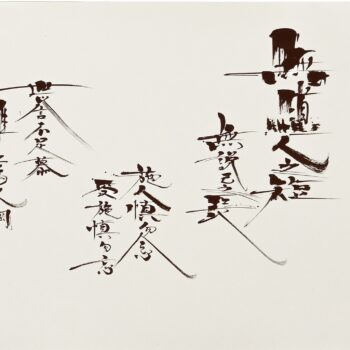 無道人之短
無説己之長
施人慎勿念
受施慎勿忘
世誉不足慕